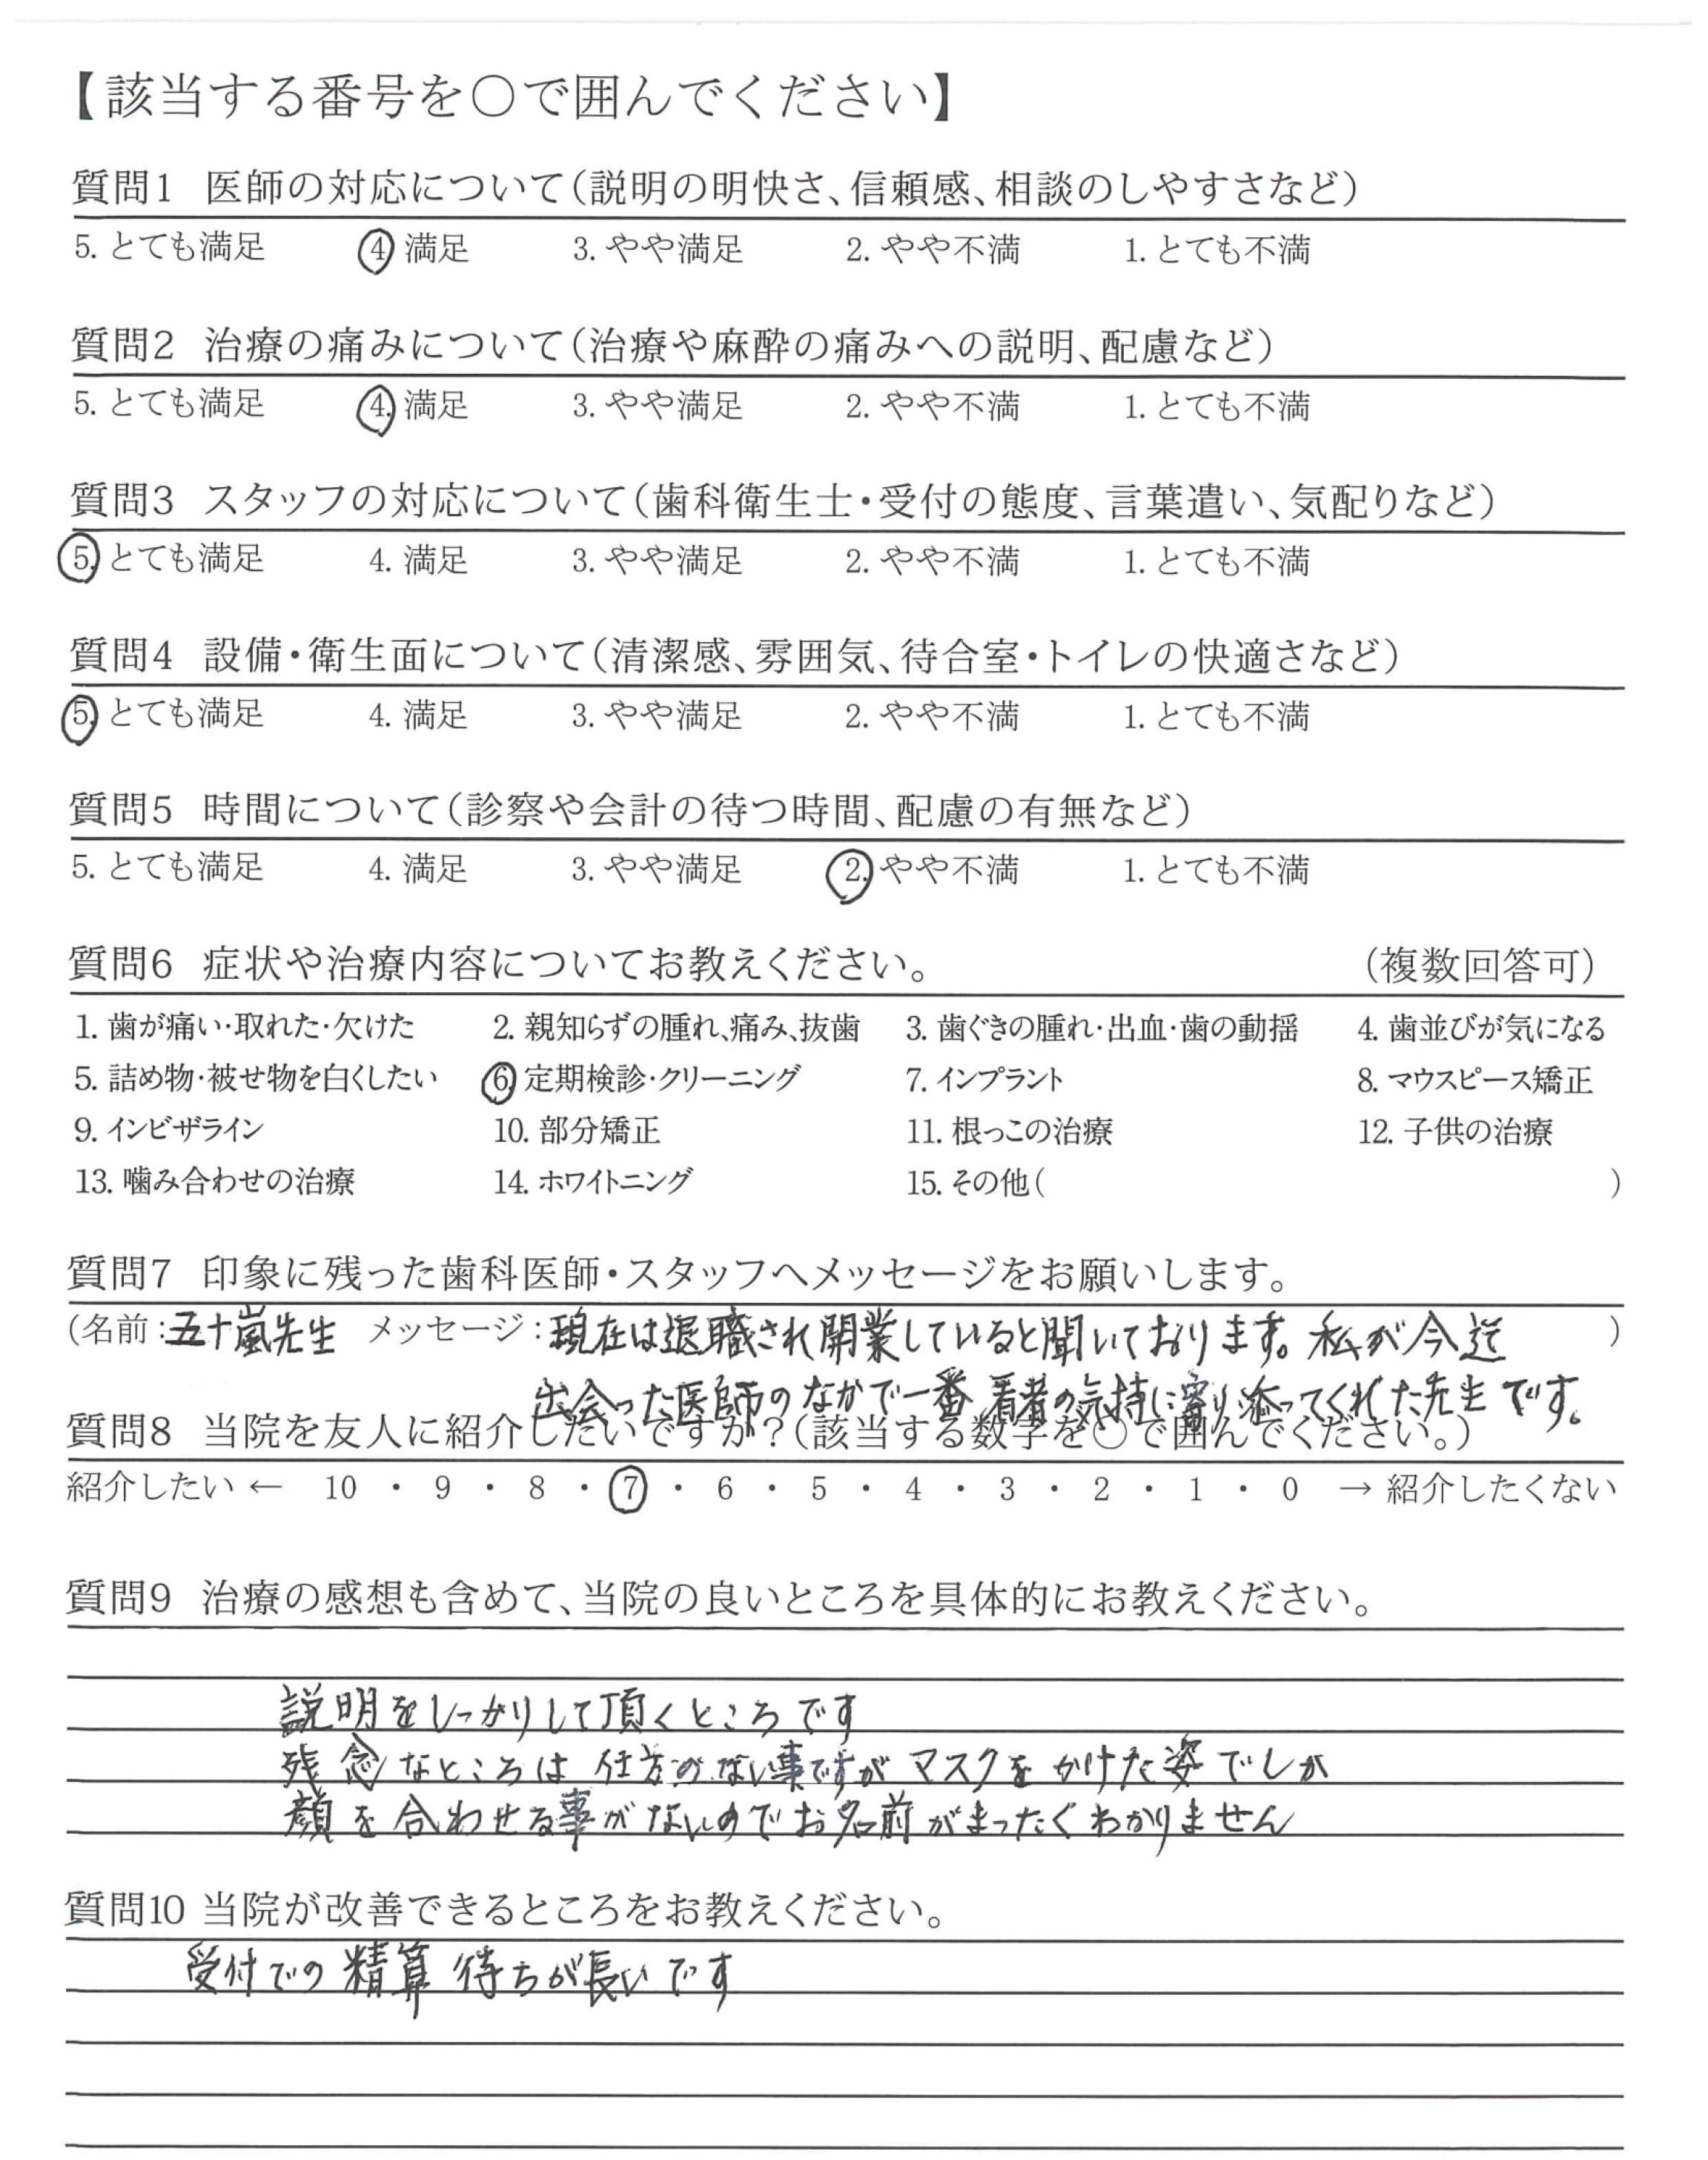 【該当する番号を〇で囲んでください】
質問1 医師の対応について(説明の明快さ、信頼感、相談のしやすさなど)
5. とても満足 4. 満足 3. やや満足 2. やや不満 1. とても不満
質問2 治療の痛みについて(治療や麻酔の痛みへの説明、配慮など)
5. とても満足 4. 満足 3. やや満足 2. やや不満 1. とても不満
質問3 スタッフの対応について(歯科衛生士・受付の態度、言葉遣い、気配りなど)
5. とても満足 4. 満足 3. やや満足 2. やや不満 1. とても不満
質問4 設備・衛生面について(清潔感、雰囲気、待合室・トイレの快適さなど)
5. とても満足 4. 満足 3. やや満足 2. やや不満 1. とても不満
質問5 時間について(診察や会計の待つ時間、配慮の有無など)
5. とても満足 4. 満足 3. やや満足 2. やや不満 1. とても不満
質問6 症状や治療内容についてお教えください。 (複数回答可)
1. 歯が痛い・取れた・欠けた 2. 親知らずの腫れ、痛み、抜歯 3. 歯ぐきの腫れ・出血・歯の動揺 4. 歯並びが気になる
5. 詰め物・被せ物を白くしたい 6. 定期検診・クリーニング 7. インプラント 8. マウスピース矯正
9. インビザライン 10. 部分矯正 11. 根っこの治療 12. 子供の治療
13. 噛み合わせの治療 14. ホワイトニング 15. その他( )
質問7 印象に残った歯科医師・スタッフへメッセージをお願いします。
(名前:五十嵐先生 メッセージ:現在は退職され開業していると聞いております。私が今迄 )
出会った医師のなかで一番 患者の気持に寄り添ってくれた先生です。
質問8 当院を友人に紹介したいですか?(該当する数字を〇で囲んでください。)
紹介したい ← 10 ・ 9 ・ 8 ・ 7 ・ 6 ・ 5 ・ 4 ・ 3 ・ 2 ・ 1 ・ 0 → 紹介したくない
質問9 治療の感想も含めて、当院の良いところを具体的にお教えください。
説明をしっかりして頂くところです
残念なところは 仕方のない事ですが マスクをかけた姿でしか
顔を合わせる事がないのでお名前がまったくわかりません
質問10 当院が改善できるところをお教えください。
受付での精算待ちが長いです